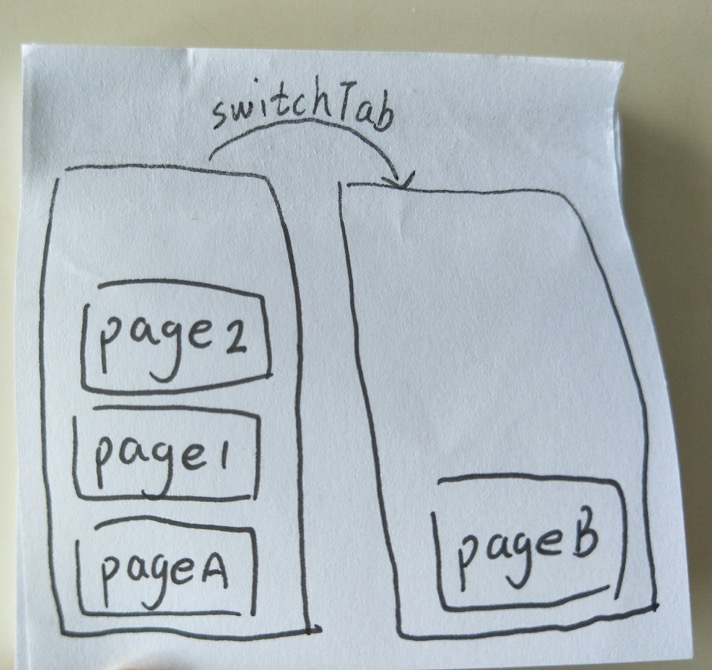 switchTab
page2
page1
pageA
pageB